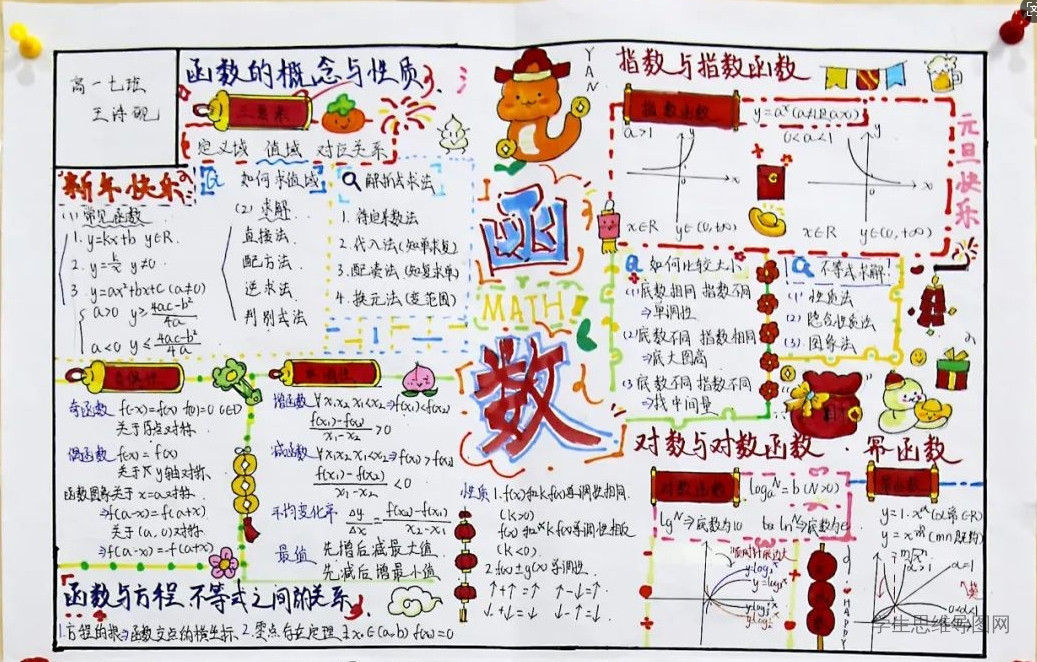 高一七班
王诗砚
函数的概念与性质
三要素
定义域 值域 对应关系
新年快乐
(1) 常见函数
1. y=kx+b y∈R.
2. y=k/x y≠0.
3. y=ax²+bx+c (a≠0)
a>0 y≥(4ac-b²)/4a
a<0 y≤(4ac-b²)/4a
Q 如何求值域
(2) 求解
直接法.
配方法.
逆求法.
判别式法
Q 解析式求法
1. 待定系数法
2. 代入法(知单求复)
3. 配凑法(知复求单)
4. 换元法(变范围)
YAN
函
MATH
数
指数与指数函数
指数函数
a>1
0<a<1
x∈R y∈(0,+∞)
x∈R y∈(0,+∞)
元旦快乐
Q 如何比较大小
(1) 底数相同 指数不同
⇒单调性
(2) 底数不同 指数相同
⇒底大图高
(3) 底数不同 指数不同
⇒找中间量
Q 不等式求解!
(1) 性质法
(2) 隐含性质法
(3) 图象法
奇偶性
奇函数
关于原点对称.
偶函数 f(-x)=f(x)
关于y轴对称.
函数图象关于x=a对称.
⇒f(a-x)=f(a+x)
关于(a,0)对称
⇒f(a-x)=-f(a+x)
单调性
增函数 ∀x₁x₂ x₁<x₂⇒f(x₁)<f(x₂)
(f(x₁)-f(x₂))/(x₁-x₂)>0
减函数 ∀x₁x₂ x₁<x₂⇒f(x₁)>f(x₂)
(f(x₁)-f(x₂))/(x₁-x₂)<0
平均变化率 Δy/Δx=(f(x₂)-f(x₁))/(x₂-x₁)
最值 先增后减最大值.
先减后增最小值
性质 1. f(x)和kf(x)单调性相同.
(k>0)
f(x)和kf(x)单调性相反
(k<0).
2. f(x)±g(x)单调性.
↑+↑=↑ ↑-↓=↑
↓+↓=↓ ↓-↑=↓
对数与对数函数
对数函数
logₐN=b (N>0)
lgN⇒底数为10 lnN⇒底数为e
幂函数
幂函数
HAPPY
函数与方程 不等式之间的关系
1. 方程的根⇒函数交点的横坐标 2. 零点存在定理 ∃x₀∈(a,b) f(x₀)=0
学生思维导图网